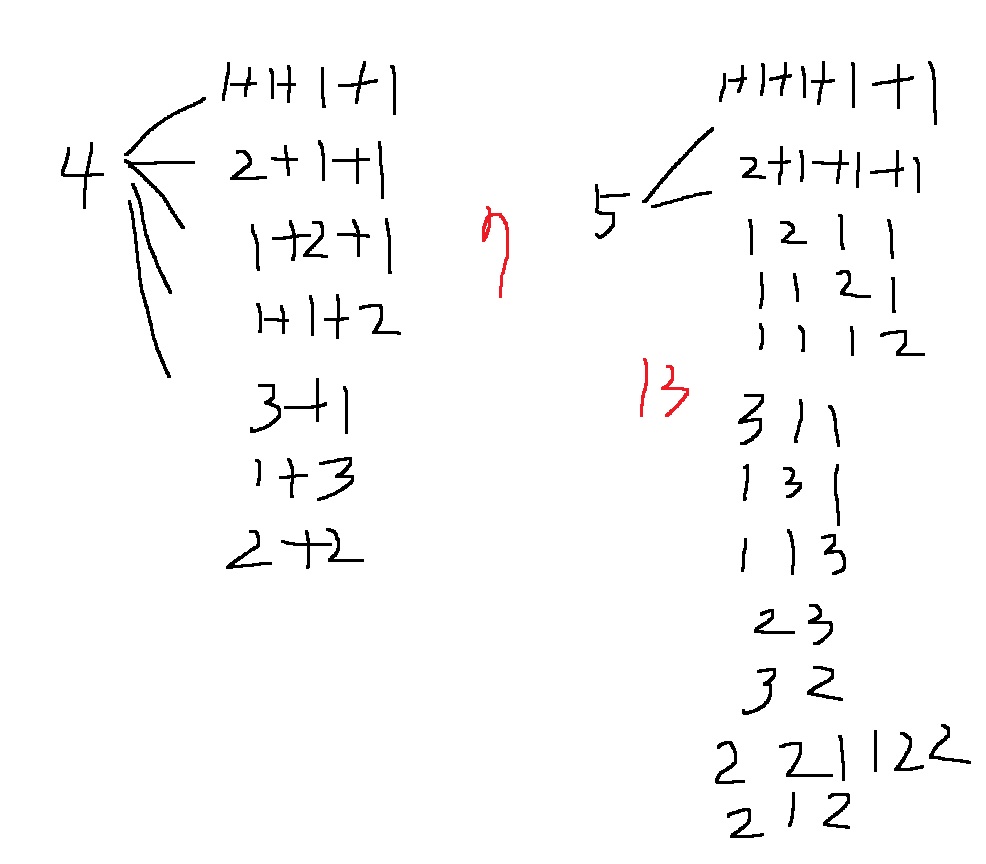 4
1+1+1+1
2+1+1
1+2+1
1+1+2
3+1
1+3
2+2
7
5
1+1+1+1+1
2+1+1+1
1 2 1 1
1 1 2 1
1 1 1 2
13
3 1 1
1 3 1
1 1 3
2 3
3 2
2 2 1 1 2 2
2 1 2